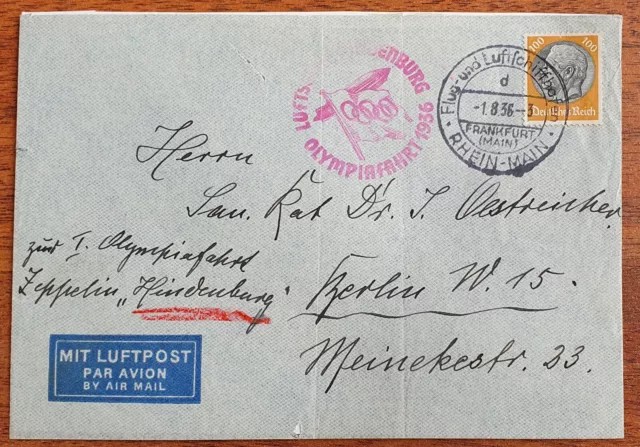 LUFTS ENBURG
OLYMPIAFAHRT 1936
Flug- und Luftschiffhafen
d
-1.8.36--3
FRANKFURT
(MAIN)
RHEIN-MAIN
100 100
Deutsches Reich
Herrn
San. Rat Dr. J. Oestreicher
Berlin W. 15.
Meinekestr. 23.
zur I. Olympiafahrt
Zeppelin „Hindenburg“
MIT LUFTPOST
PAR AVION
BY AIR MAIL